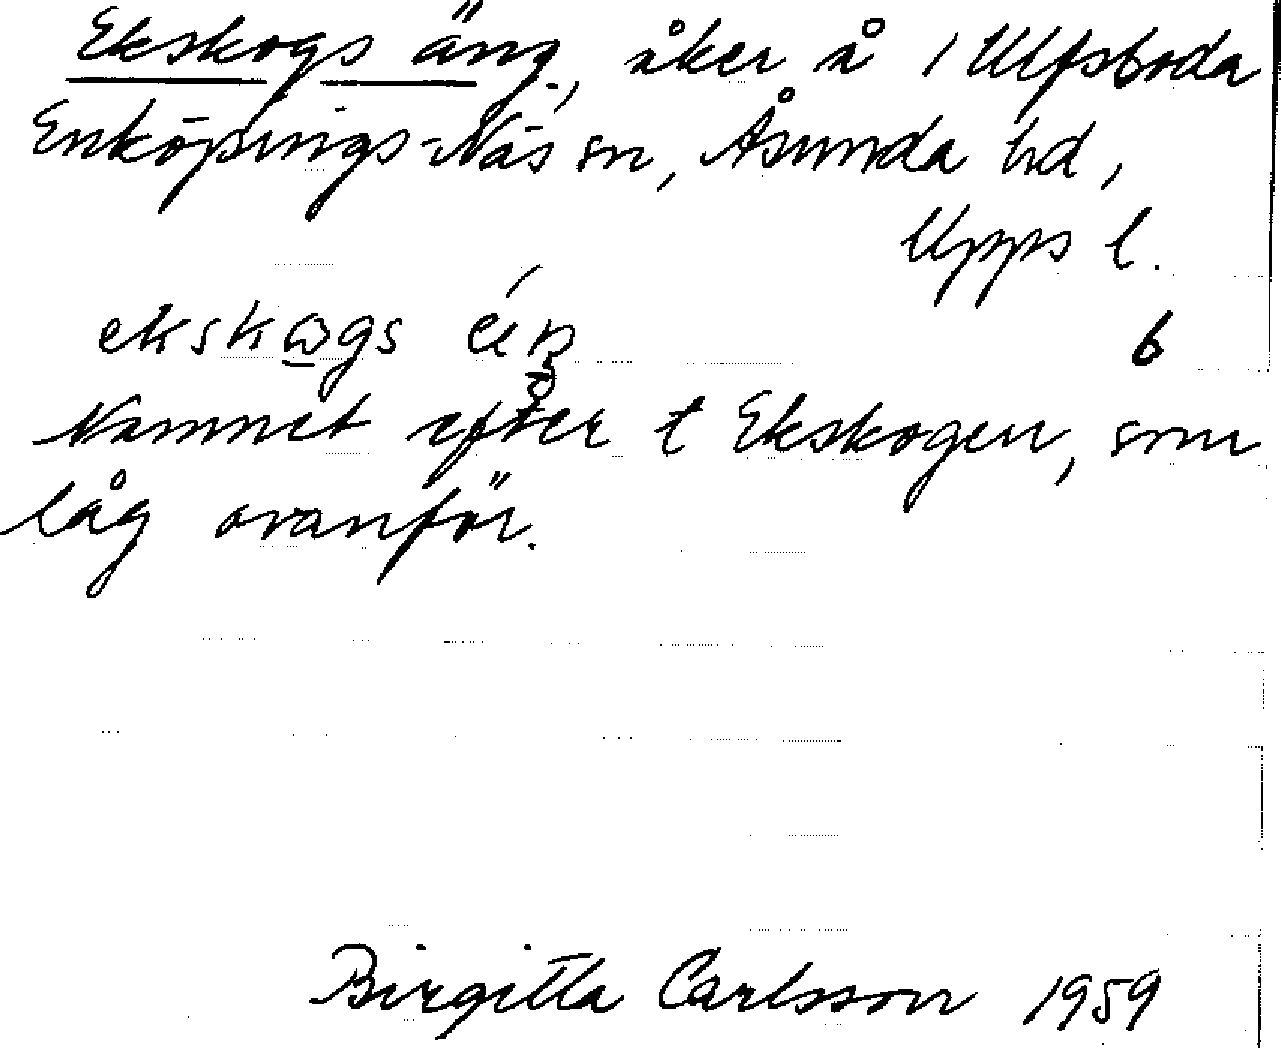 Ekskogs äng, åker å 1 Ulfsboda
Enköpings-Näs sn, Åsunda hd,
Upps l.
6
Namnet efter t Ekskogen, som
låg ovanför.
Birgitta Carlsson 1959